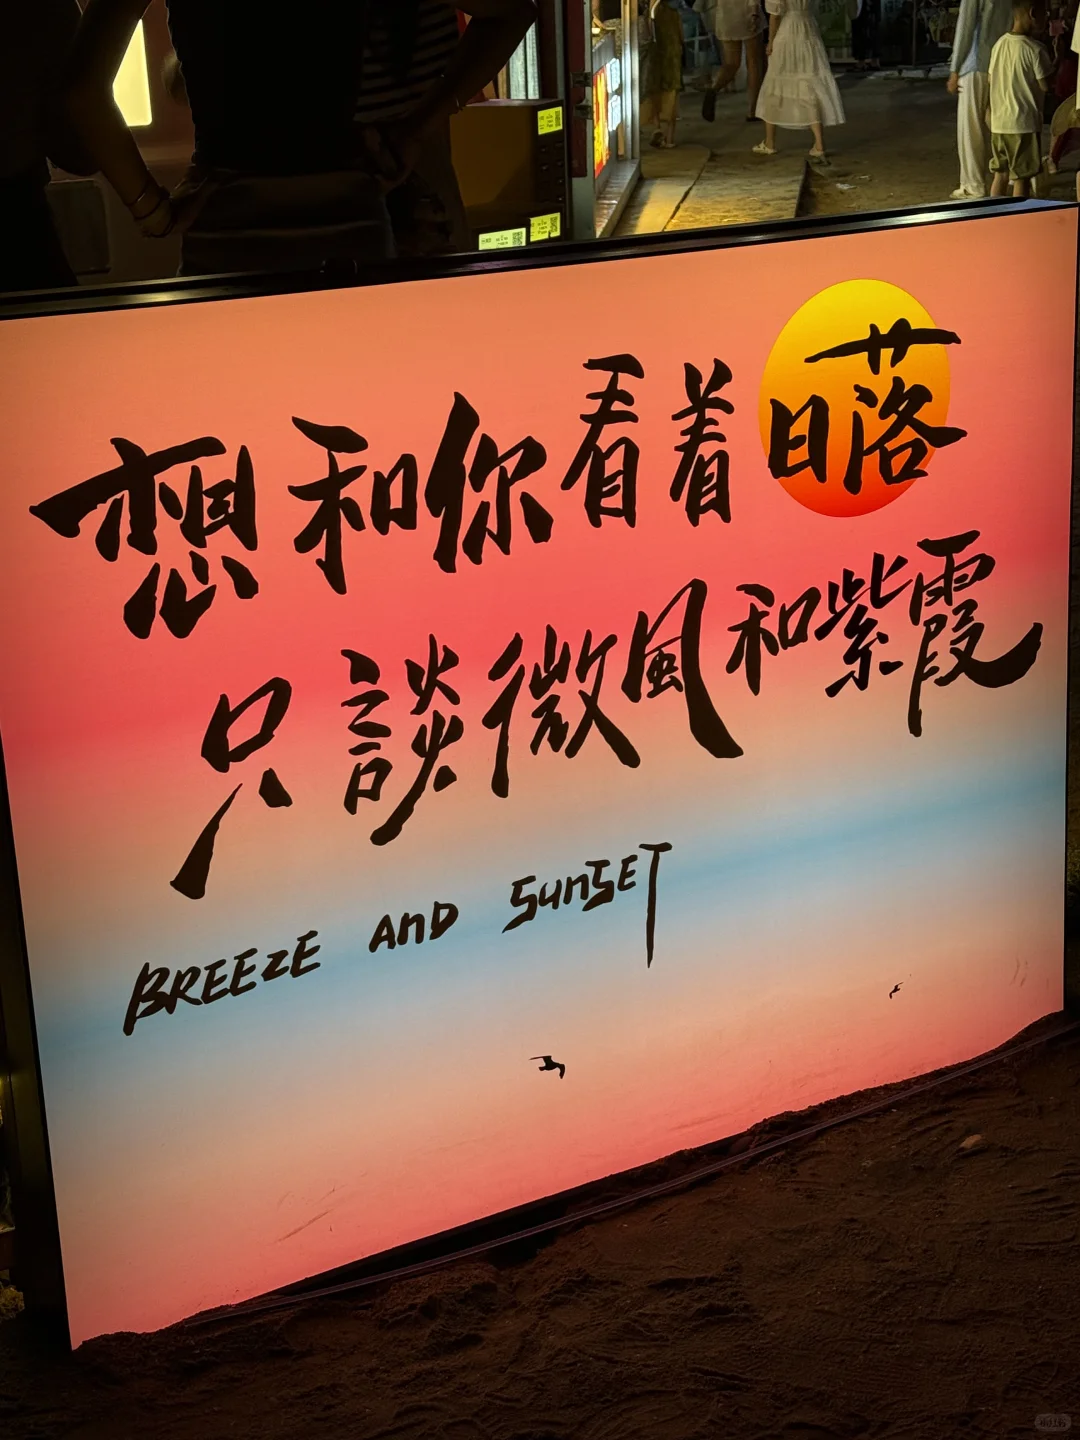 想和你看着日落
只談微風和紫霞
BREEZE AND SUNSET